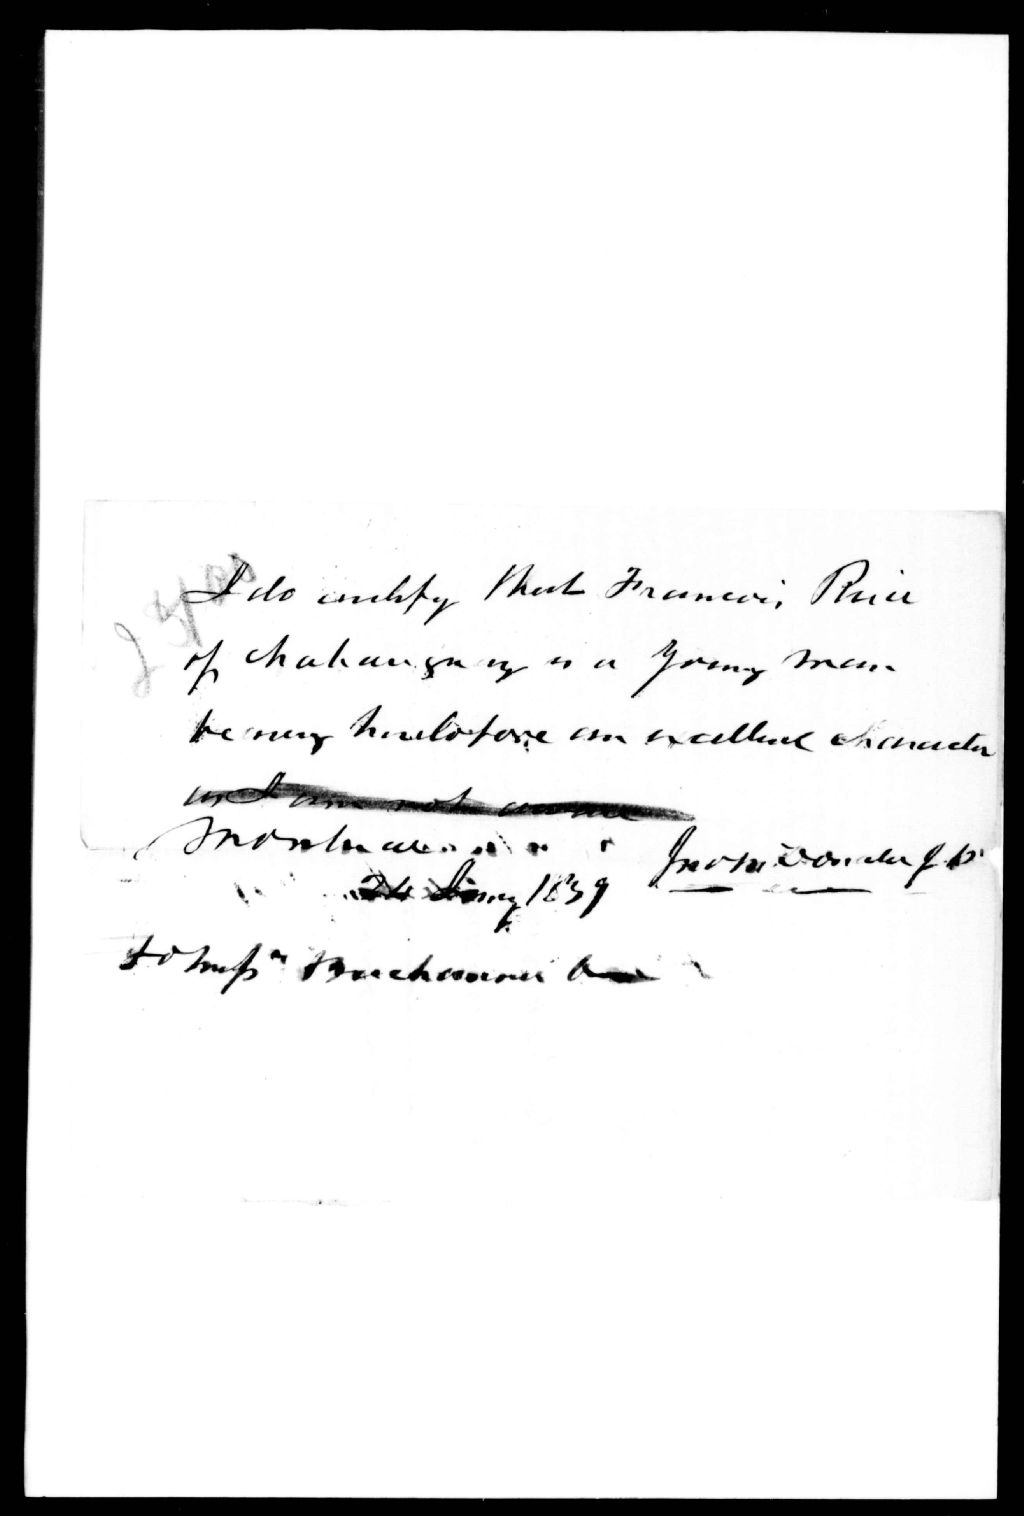 I do certify that Francois Rice
of Chahauguay is a young man
bearing heretofore an excellent character
as I am not
Montreal
24 Jany 1839
Jno McDonder J P
to Mess rs Buchannan